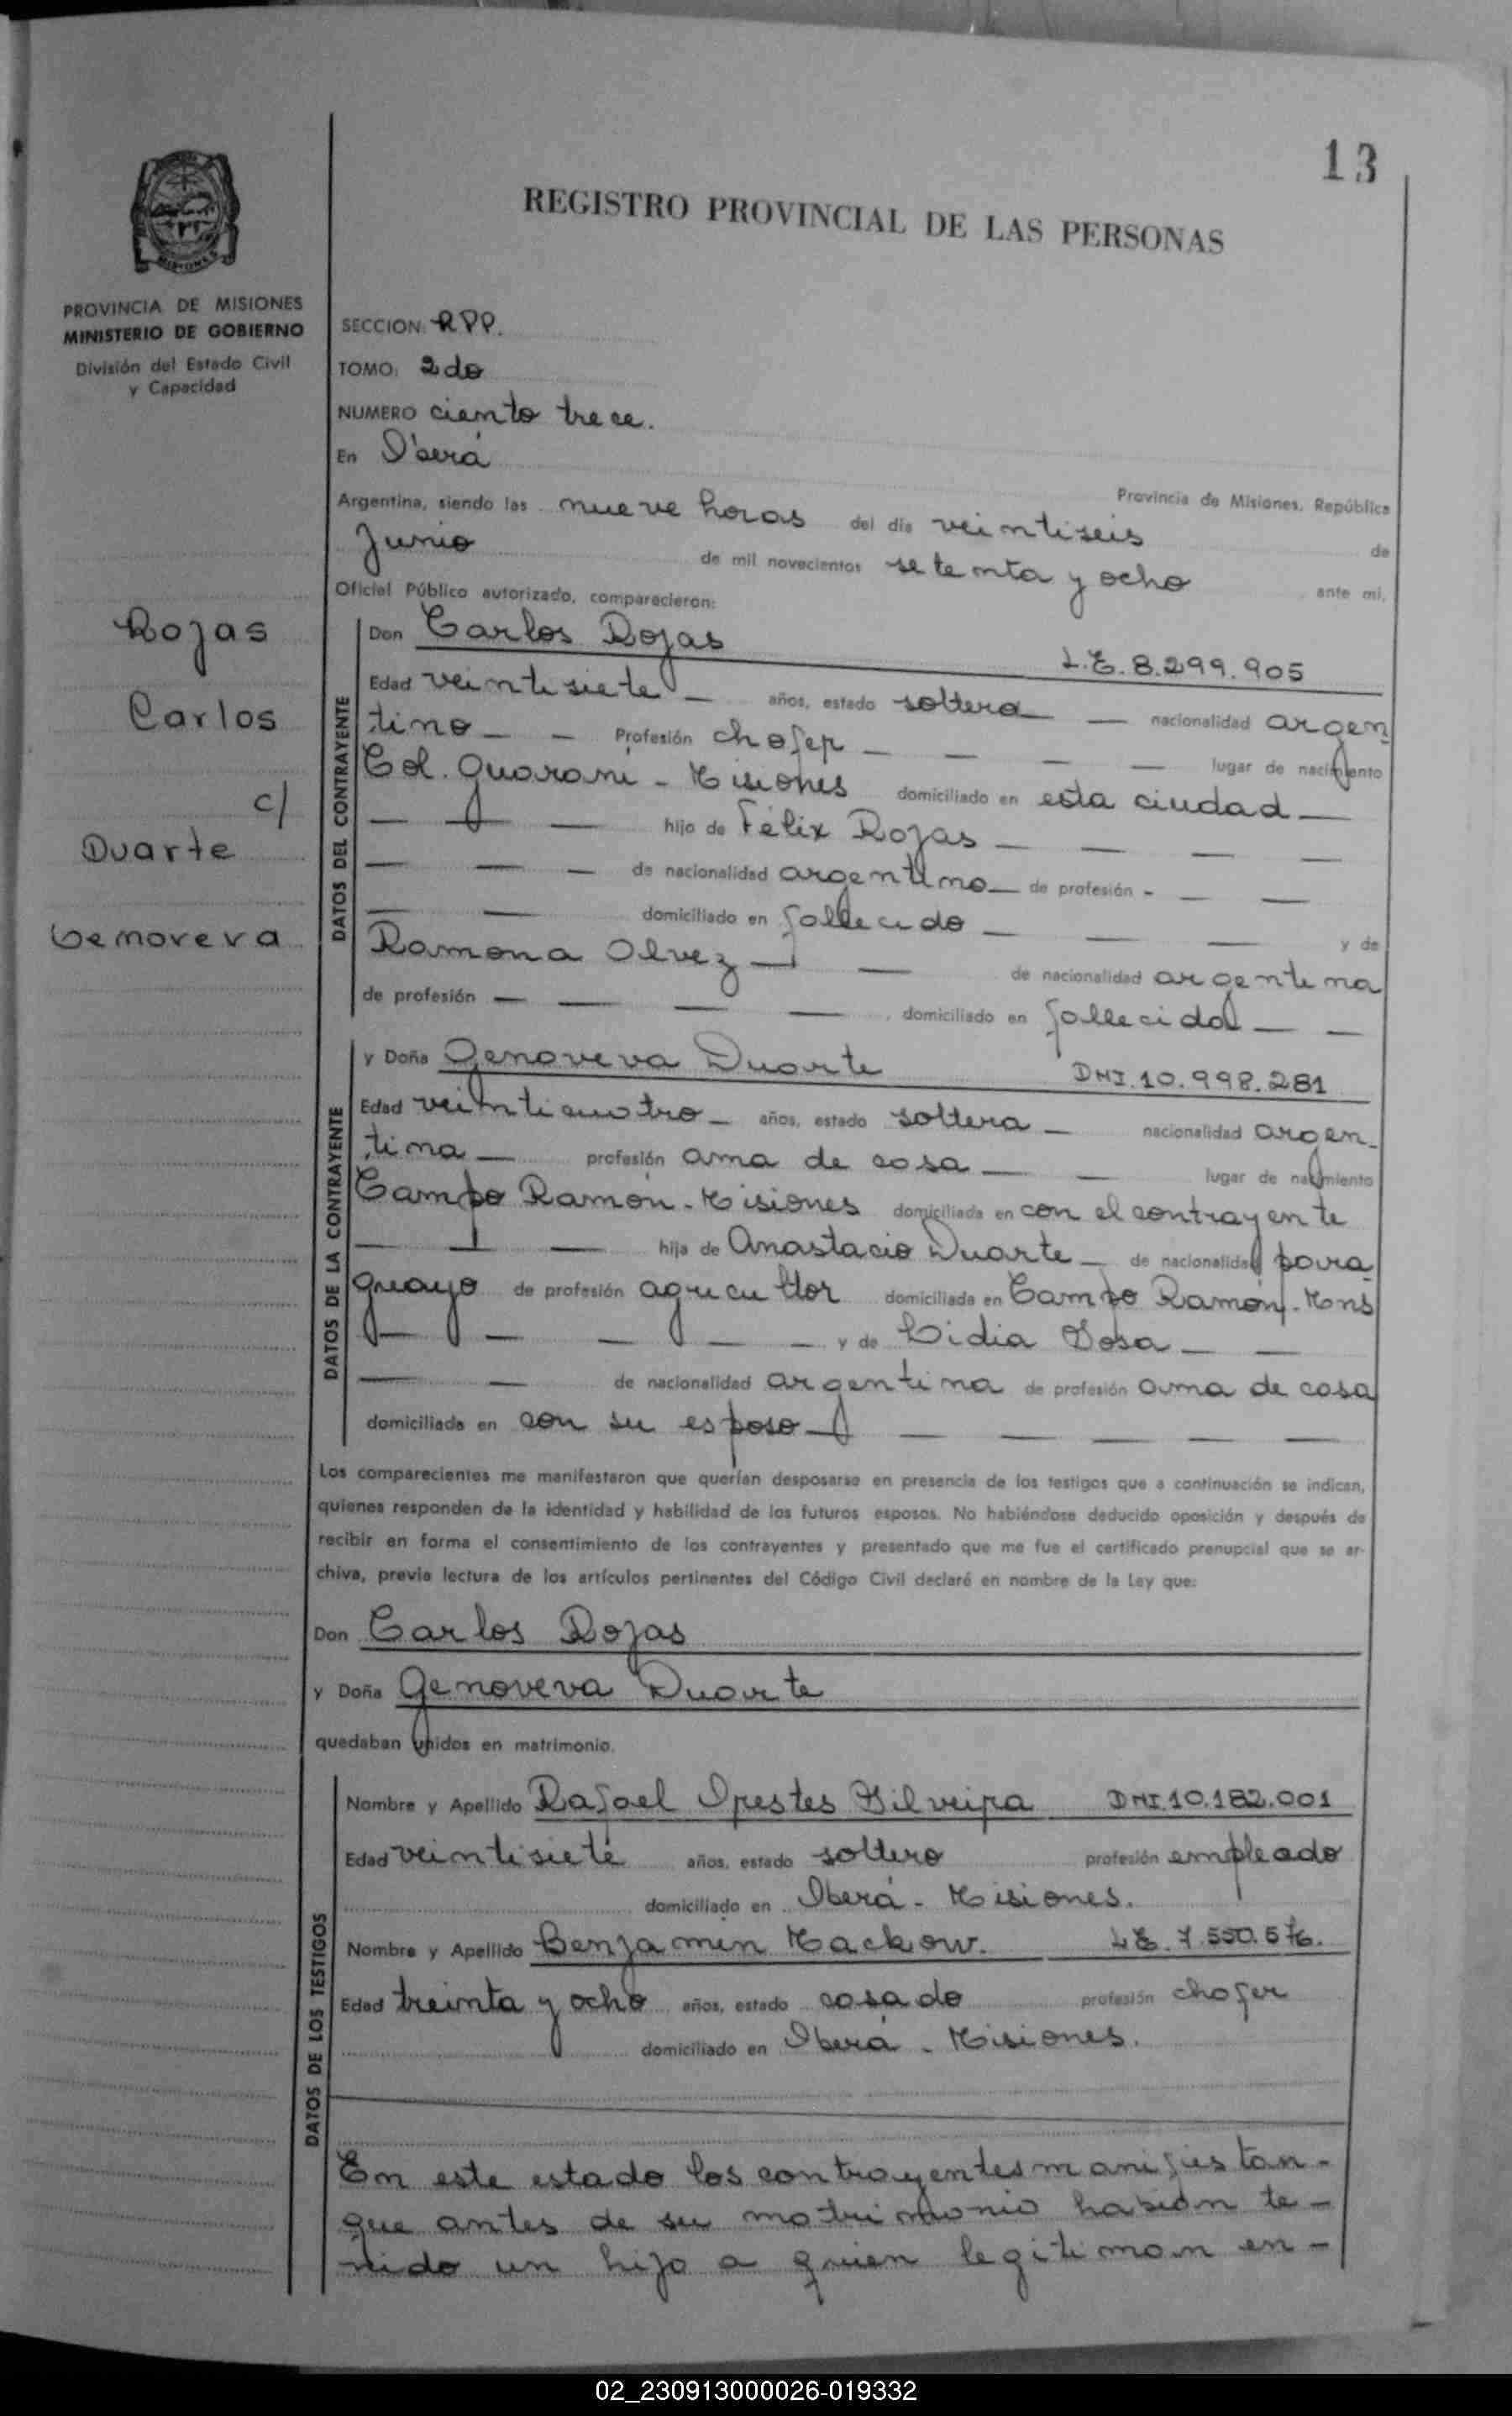 13
REGISTRO PROVINCIAL DE LAS PERSONAS
MISIONES
PROVINCIA DE MISIONES
MINISTERIO DE GOBIERNO
División del Estado Civil
y Capacidad
Rojas
Carlos
c/
Duarte
Genoveva
SECCION: RPP.
TOMO: 2do
NUMERO ciento trece.
En Oberá
Provincia de Misiones, República
Argentina, siendo las nueve horas del día veintiseis de
Junio de mil novecientos setenta y ocho ante mi,
Oficial Público autorizado, comparecieron:
DATOS DEL CONTRAYENTE
Don Carlos Rojas L.E. 8.299.905
Edad veintisiete — años, estado soltero — nacionalidad argen
tino — — Profesión chofer — — — — lugar de nacimiento
Col. Guaraní - Misiones domiciliado en esta ciudad —
— — — hijo de Félix Rojas — — — —
— — — de nacionalidad argentino — de profesión - — —
— — domiciliado en fallecido — — — y de
Ramona Olvez — — de nacionalidad argentina
de profesión — — — — , domiciliado en fallecida — —
DATOS DE LA CONTRAYENTE
y Doña Genoveva Duarte DNI. 10.998.281
Edad veinticuatro — años, estado soltera — nacionalidad argen-
tina — profesión ama de casa — — lugar de nacimiento
Campo Ramón - Misiones domiciliada en con el contrayente
— — — hija de Anastacio Duarte — de nacionalidad para
guayo de profesión agricultor domiciliada en Campo Ramón - Mns
— — — — — y de Lidia Sosa — —
— — de nacionalidad argentina de profesión ama de casa
domiciliada en con su esposo — — — — — —
Los comparecientes me manifestaron que querían desposarse en presencia de los testigos que a continuación se indican,
quienes responden de la identidad y habilidad de los futuros esposos. No habiéndose deducido oposición y después de
recibir en forma el consentimiento de los contrayentes y presentado que me fue el certificado prenupcial que se ar-
chiva, previa lectura de los artículos pertinentes del Código Civil declaré en nombre de la Ley que:
Don Carlos Rojas
y Doña Genoveva Duarte
quedaban unidos en matrimonio.
DATOS DE LOS TESTIGOS
Nombre y Apellido Rafael Orestes Silveira DNI. 10.182.001
Edad veintisiete años, estado soltero profesión empleado
domiciliado en Oberá - Misiones.
Nombre y Apellido Benjamin Mackow. L.E. 7.550.576.
Edad treinta y ocho años, estado casado profesión chofer
domiciliado en Oberá - Misiones.
En este estado los contrayentes manifiestan -
que antes de su matrimonio habían te -
nido un hijo a quien legitiman en -
02_230913000026-019332